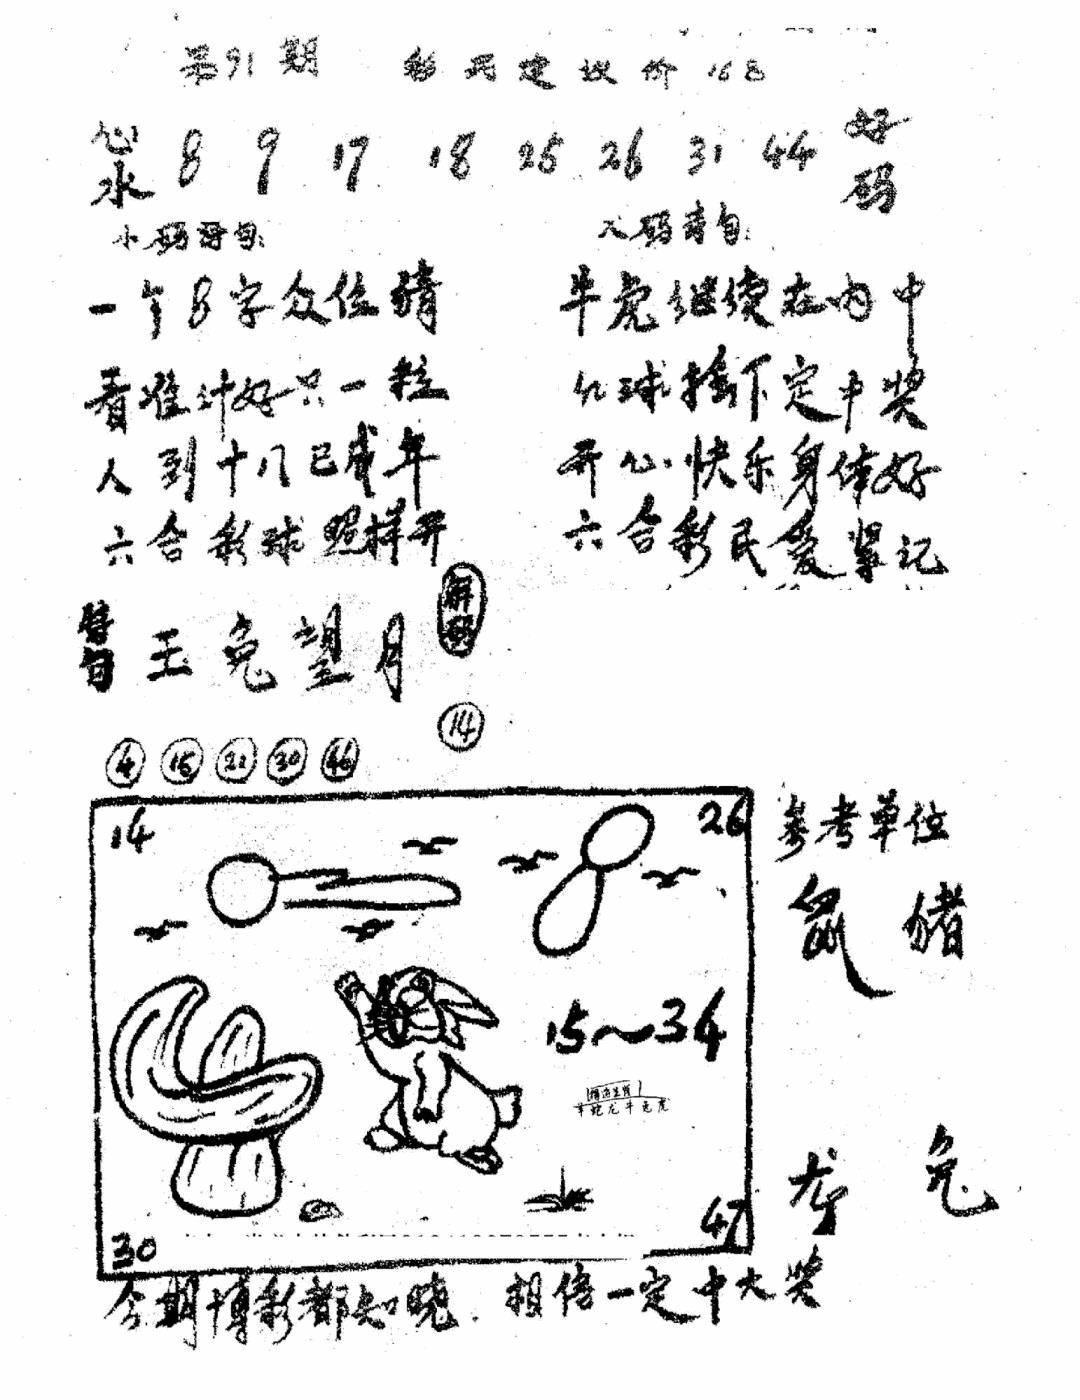 第91期 彩民建议价16元
心水 8 9 17 18 25 26 31 44 好码
小码诗句:
一个8字众位猜
看准计好只一粒
人到十八已成年
六合彩球照样开
六码诗句:
牛虎继续在内中
红球擒下定中奖
开心快乐身体好
六合彩民爱紧记
玉兔望月
解码
14
4 15 21 30 46
14
26
15~34
羊蛇龙牛兔虎
30
47
参考单位
鼠 猪
龙 兔
今期博彩都知晓.相信一定中大奖